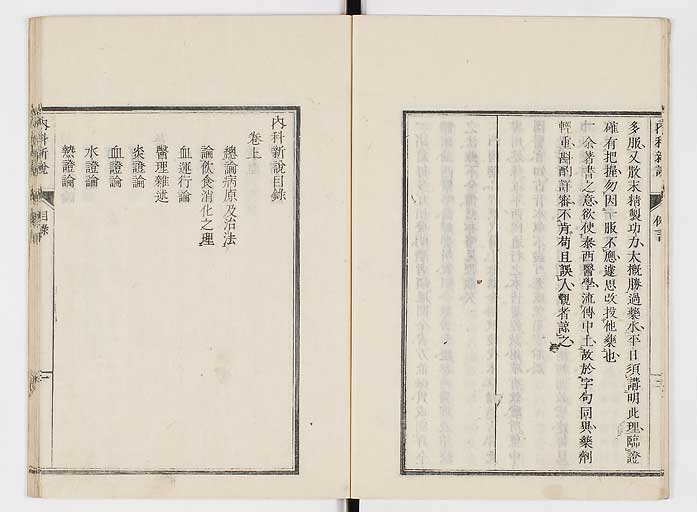 多服又散末精製功力大概勝過藥水平日須講明此理臨證
確有把握勿因一服不應遽思改投他藥也
一余著書之意欲使泰西醫學流傳中土故於字句同異藥劑
輕重斟酌詳審不肯苟且誤人觀者諒之
內科新說
例言
內科新說目錄
卷上
總論病原及治法
論飲食消化之理
血運行論
醫理雜述
炎證論
血證論
水證論
熱證論
內科新說
目錄
一